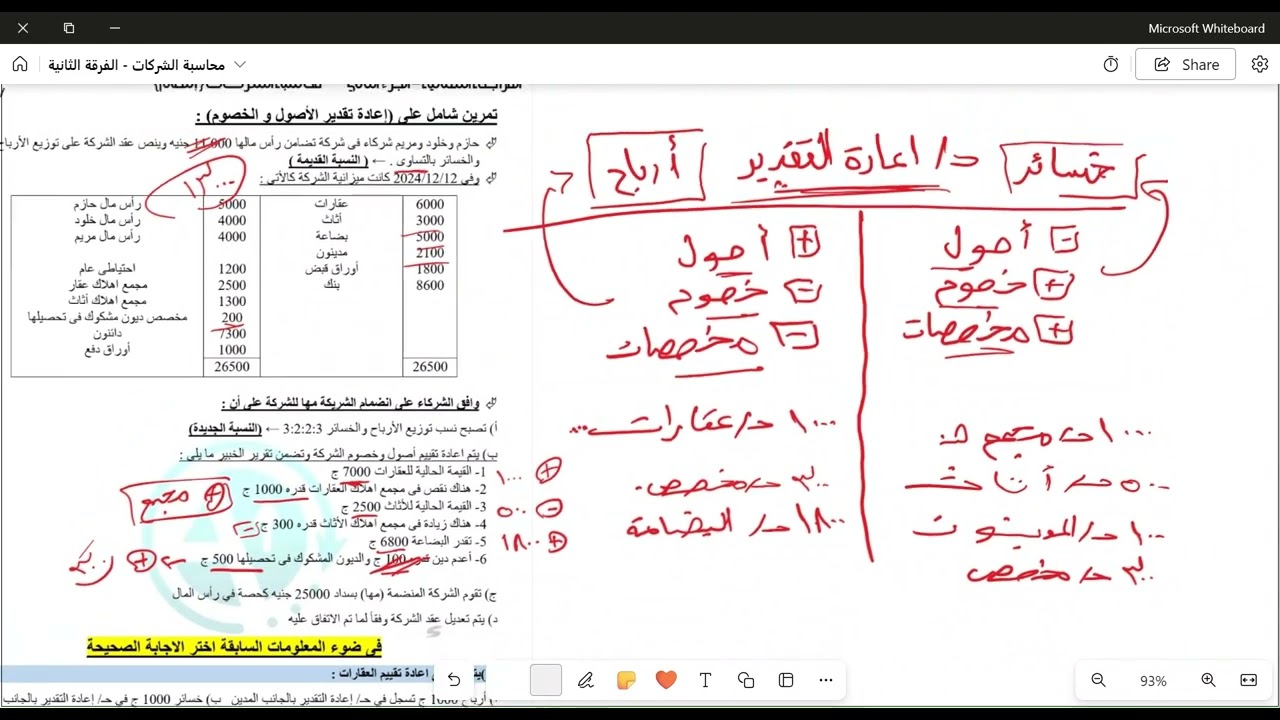 Microsoft Whiteboard
محاسبة الشركات - الفرقة الثانية
Share
تمرين شامل على (إعادة تقدير الأصول و الخصوم) :
حازم وخلود ومريم شركاء فى شركة تضامن رأس مالها 11.000 جنيه وينص عقد الشركة على توزيع الأرباح
والخسائر بالتساوى . ← ( النسبة القديمة )
وفى 2024/12/12 كانت ميزانية الشركة كالأتى :
١٣٠٠٠
6000 عقارات 5000 رأس مال حازم
3000 أثاث 4000 رأس مال خلود
5000 بضاعة 4000 رأس مال مريم
2100 مدينون
1800 أوراق قبض 1200 احتياطى عام
8600 بنك 2500 مجمع اهلاك عقار
1300 مجمع اهلاك أثاث
200 مخصص ديون مشكوك فى تحصيلها
7300 دائنون
1000 أوراق دفع
26500 26500
وافق الشركاء على انضمام الشريكة مها للشركة على أن :
أ) تصبح نسب توزيع الأرباح والخسائر 3:2:2:3 ← (النسبة الجديدة)
ب) يتم اعادة تقييم أصول وخصوم الشركة وتضمن تقرير الخبير ما يلى :
1- القيمة الحالية للعقارات 7000 ج
١٠٠٠ +
2- هناك نقص فى مجمع اهلاك العقارات قدره 1000 ج
+ مجمع
3- القيمة الحالية للأثاث 2500 ج
٥٠٠ -
4- هناك زيادة فى مجمع اهلاك الأثاث قدره 300 ج
5- تقدر البضاعة 6800 ج
١٨٠٠ +
6- أعدم دين 100 ج والديون المشكوك فى تحصيلها 500 ج
ج) تقوم الشركة المنضمة (مها) بسداد 25000 جنيه كحصة في رأس المال
د) يتم تعديل عقد الشركة وفقاً لما تم الاتفاق عليه
فى ضوء المعلومات السابقة اختر الاجابة الصحيحة
اعادة تقييم العقارات :
أرباح 1000 ج تسجل في حـ/ إعادة التقدير بالجانب المدين ب) خسائر 1000 ج في حـ/ إعادة التقدير بالجانب
خسائر د/ اعادة التقدير أرباح
- أصول + أصول
+ خصوم - خصوم
+ مخصصات - مخصصات
١٠٠٠ حـ/ عقارات
٣٠٠ حـ/ مخصص
٥٠٠ حـ/ أثاث
١٨٠٠ حـ/ البضاعة
١٠٠ حـ/ المدينون
٣٠٠ حـ/ مخصص
93%